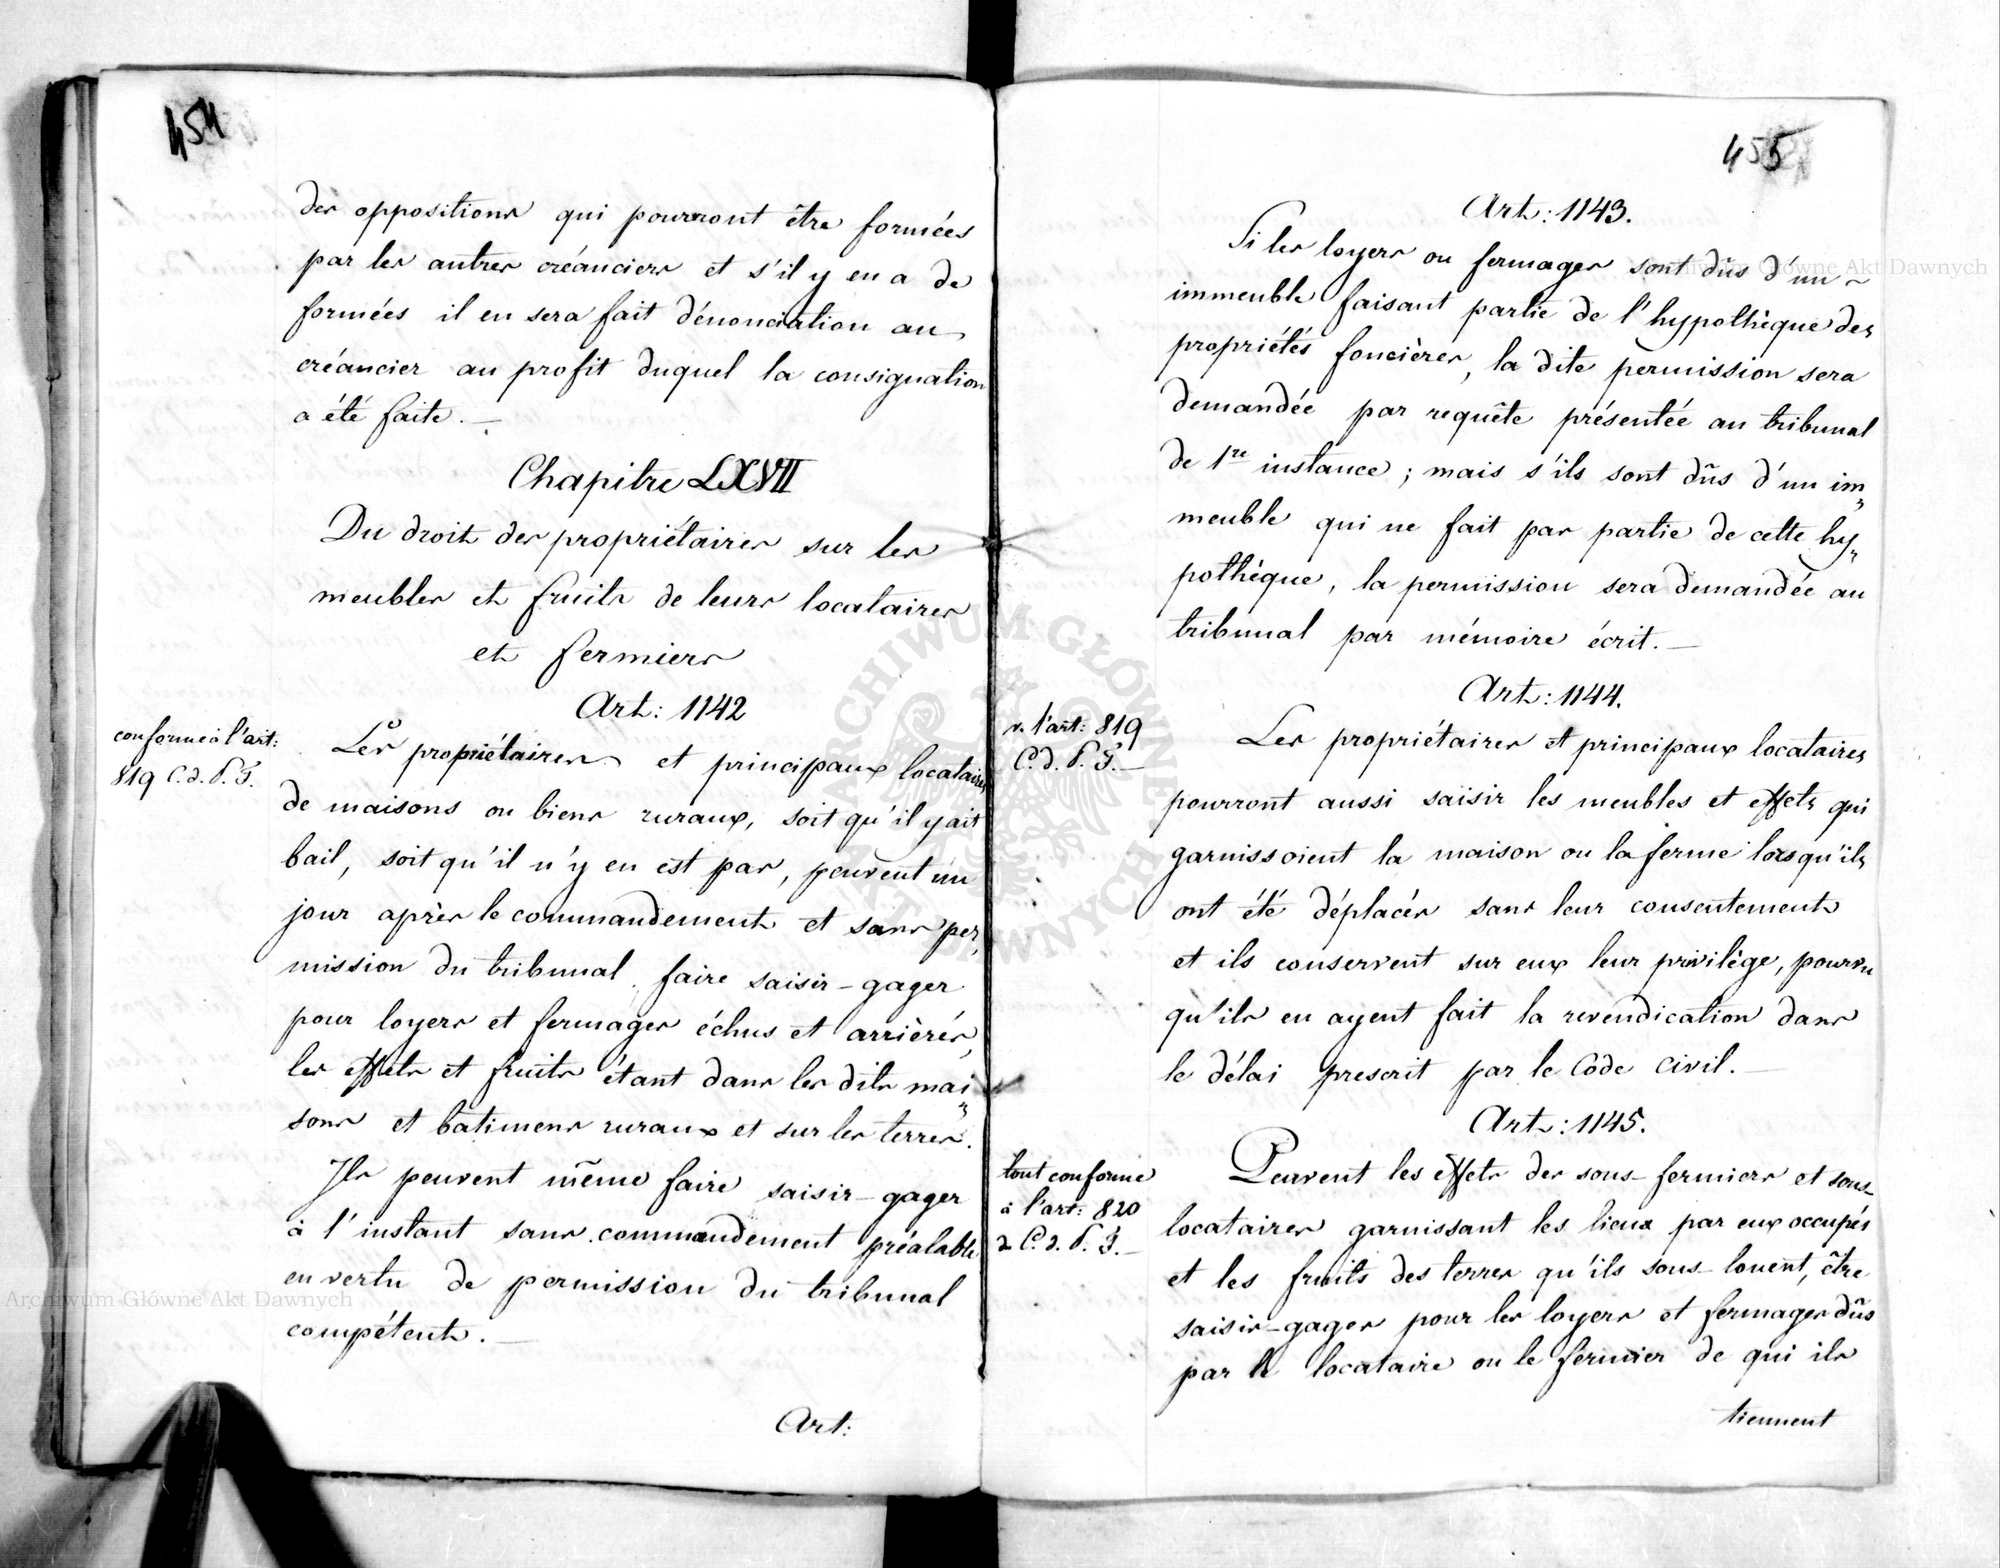 454
des oppositions qui pourront être formées
par les autres créanciers et s'il y en a de
formées il en sera fait dénonciation au
créancier au profit duquel la consignation
a été faite. —
Chapitre LXVII
Du droit des propriétaires sur les
meubles et fruits de leurs locataires
et fermiers
Art: 1142
conforme à l'art:
819 C. d. P. F.
Les propriétaires et principaux locataires
de maisons ou biens ruraux, soit qu'il y ait
bail, soit qu'il n'y en est pas, peuvent un
jour après le commandement et sans per„
mission du tribunal faire saisir-gager
pour loyers et fermages échus et arriérés,
les effets et fruits étant dans les dits mai„
sons et batimens ruraux et sur les terres.
Ils peuvent même faire saisir-gager
à l'instant sans commandement préalable
en vertu de permission du tribunal
compétent. —
Art:
455
Art: 1143.
Si les loyers ou fermages sont dûs d'un
immeuble faisant partie de l'hypothèque des
propriétés foncières, la dite permission sera
demandée par requête présentée au tribunal
de 1re instance ; mais s'ils sont dûs d'un im„
meuble qui ne fait pas partie de cette hy„
pothèque, la permission sera demandée au
tribunal par mémoire écrit. —
Art: 1144.
v. l'art: 819
C. d. P. F. —
Les propriétaires et principaux locataires
pourront aussi saisir les meubles et effets qui
garnissoient la maison ou la ferme lorsqu'ils
ont été déplacés sans leur consentement
et ils conservent sur eux leur privilège, pourvu
qu'ils en ayent fait la revendication dans
le délai prescrit par le Code civil. —
Art: 1145.
tout conforme
à l'art: 820
d C. d. P. F. —
Peuvent les effets des sous-fermiers et sous-
locataires garnissant les lieux par eux occupés
et les fruits des terres qu'ils sous-louent, être
saisis-gagés pour les loyers et fermages dûs
par le locataire ou le fermier de qui ils
tiennent
Archiwum Główne Akt Dawnych
Archiwum Główne Akt Dawnych
ARCHIWUM GŁÓWNE AKT DAWNYCH